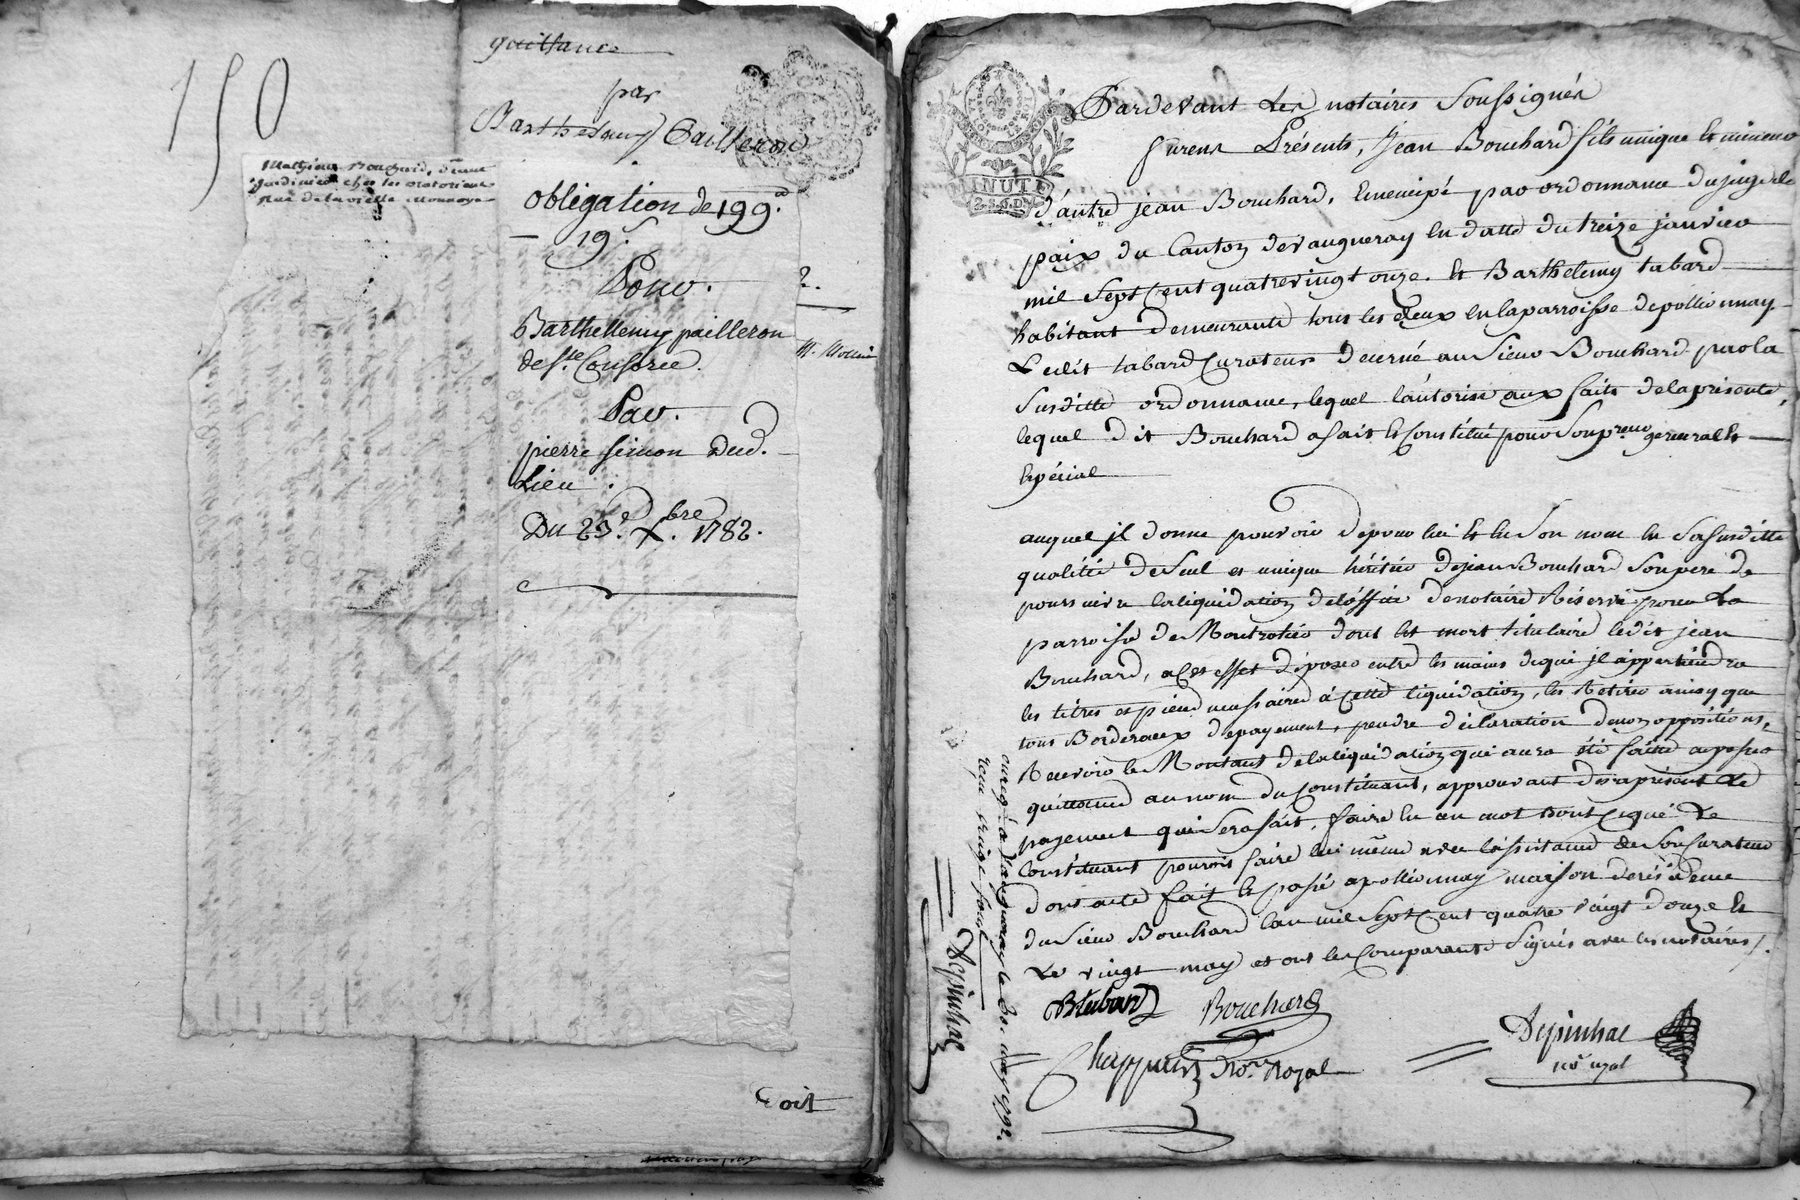 quittance
par
Barthelemy Pailleron
150
Mathieu
jardinier chez les oratoriens
Rue de la vielle monnoye
obligation de 199#
19s
Pour.
Barthellemy pailleron
de Ste Consorce.
Par.
pierre simon Dud.
Lieu.
Du 23e Xbre 1782.
2.
Doit
MINUTE
2.S.6.D.
Pardevant Les notaires Soussignés
furent Présents, Jean Bouchard fils unique et mineur
d'autre jean Bouchard, Emencipé par ordonnance du juge de
paix du Canton de vaugneray en datte du treize janvier
mil Sept Cent quatrevingt onze. Et Barthelemy tabard
habitant demeurants tous les deux en la parroisse de pollionnay.
Ledit tabard Curateur decerné au Sieur Bouchard par la
Susditte ordonnance, lequel l'autorise aux faits de la présente,
lequel dit Bouchard a fait et Constitué pour Son preur general et
Espécial
auquel jl donne pouvoir de pour lui et En Son nom En Sa susditte
qualité de Seul et unique héritier de jean Bouchard Son pere de
poursuivre la liquidation de l'office de notaire Réservé pour La
parroisse de Montrotier dont Est mort titulaire ledit jean
Bouchard, a Cet effet déposer entre les mains de qui jl appartiendra
les titres et pieces necessaires à Cette liquidation, les Retirer ainsy que
tous Bordereaux de payement, prendre déclaration de non oppositions,
Recevoir le Montant de la liquidation qui aura été faitte en passer
quittance au nom du Constituant, approuvant des a présent Le
payement qui Sera fait, faire En un mot tout Ce que Le
Constituant pourroit faire lui même avec l'assistance de Son Curateur
dont acte fait et passé a pollionnay maison de résidence
du Sieur Bouchard l'an mil Sept Cent quatre vingt douze et
Le vingt may et ont les Comparants Signés avec les notaires ./.
BTabard Bouchard
Chappuis Nore Royal
Depinhac
nore royal
enreg. a Vaugneray le 20. may 1792.
reçu quinze sous
Depinhac